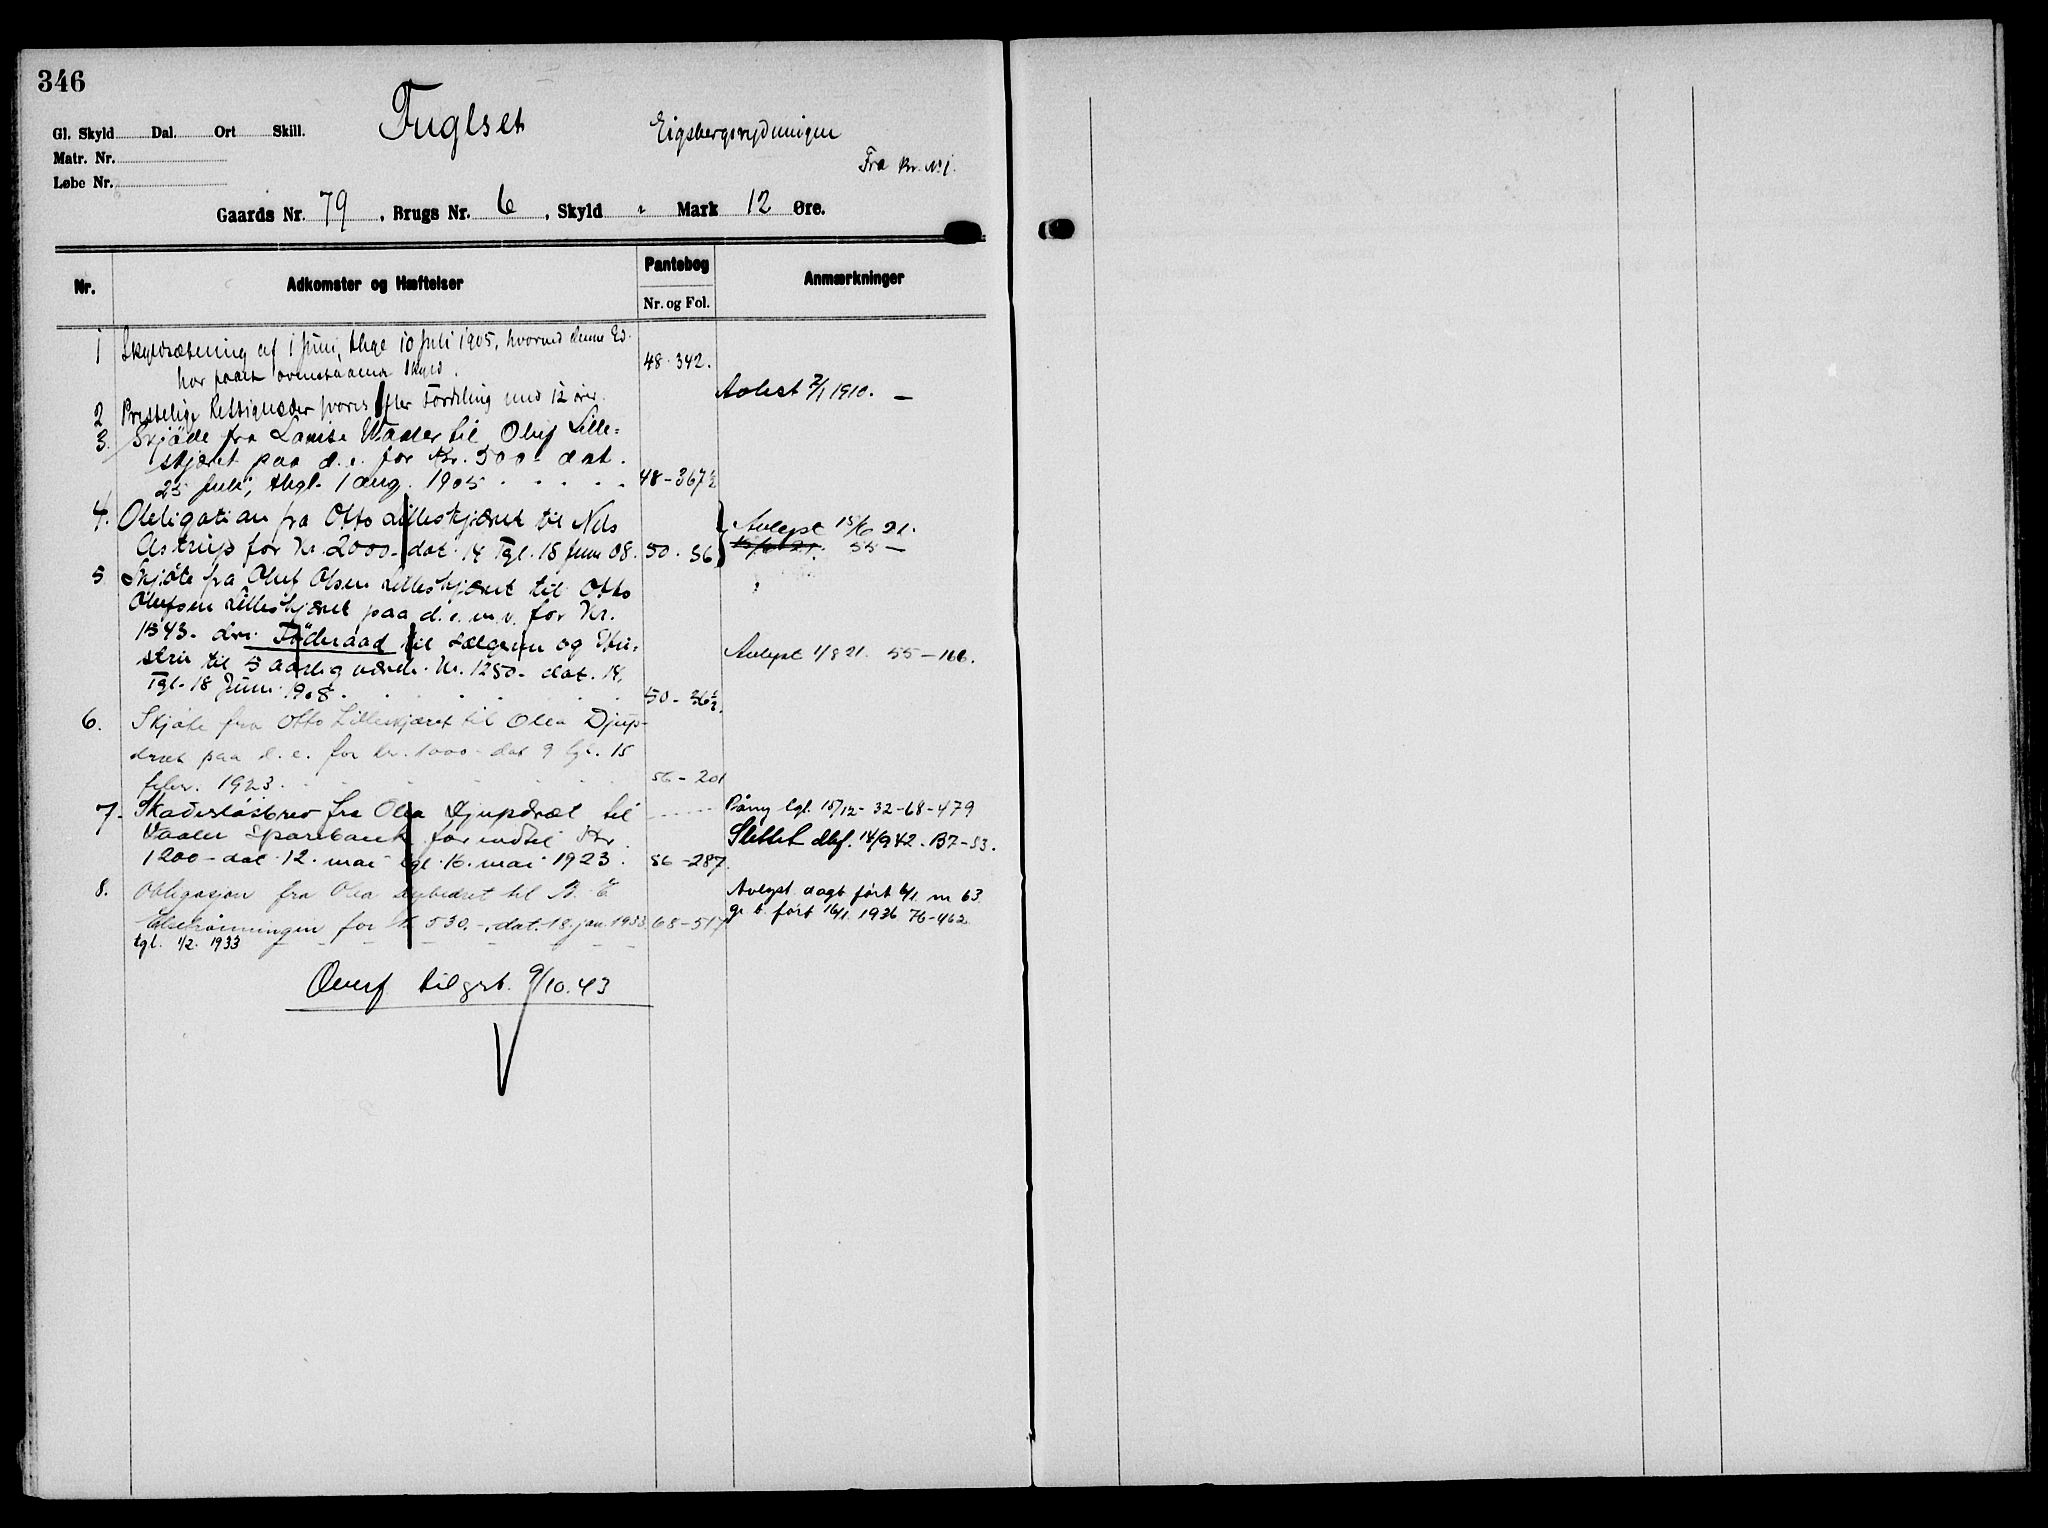 346
Fuglset
Gl. Skyld Dal. Ort Skill.
Matr. Nr.
Løbe Nr.
Fra Br. No 1.
Gaards Nr. 79, Brugs Nr. 6, Skyld " Mark 12 Øre.
Nr. Adkomster og Hæftelser Pantebog Nr. og Fol. Anmærkninger
1 Skyldsætning af 1 Juni, thgl 10 Juli 1905, hvorved denne Ed.
har faaet ovenstaaende Skyld. 48-342.
2 Prestelige Rettigheder hvoref efter Fordeling med 12 øre. Avlest 7/1 1910. —
3. Skjøde fra Louise Vaaler til Oluf Lille=
skjæret paa d. e. for Kr. 500- dat.
25 Juli, thgl. 1 aug. 1905 48-367½
4. Obligation fra Otto Lilleskjæret til Nils Avlyst 15/6 21.
Astrup for Kr. 2000- dat. 14 Tgl. 18 Juni 08. 50-36 15/6 21. 55 —
5 Skjøte fra Oluf Olsen Lilleskjæret til Otto
Olufsen Lilleskjæret paa d. e. m. v. for Kr.
1843- dvs. Föderaad til sælgeren og Hu=
stru til 5 aarlig værdi Kr. 1250- dat. 14, Avlyst 1/8 21. 55-166.
Tgl. 18 Juni 1908. 50-36½.
6. Skjøte fra Otto Lilleskjæret til Olea Djup-
dræt paa d. e. for kr. 1000- dat 9 tgl. 15
febr. 1923. 56-201
7. Skadesløsbrev fra Olea Djupdræt til Påny tgl. 15/12-32-68-479
Vaaler Sparebank for indtil Kr. Slettet dbf. 14/9 42. B7-53.
1200- dat. 12. mai tgl. 16. mai 1923. 56-287.
8. Obligasjon fra Olea til Avlyst dagb. ført 6/1 m 63
for kr 530.-, dat. 18. jan. 1933 68-517 gr. b. ført 16/1 1936 76-462
tgl. 1/2. 1933
Overf til grb. 9/10.43